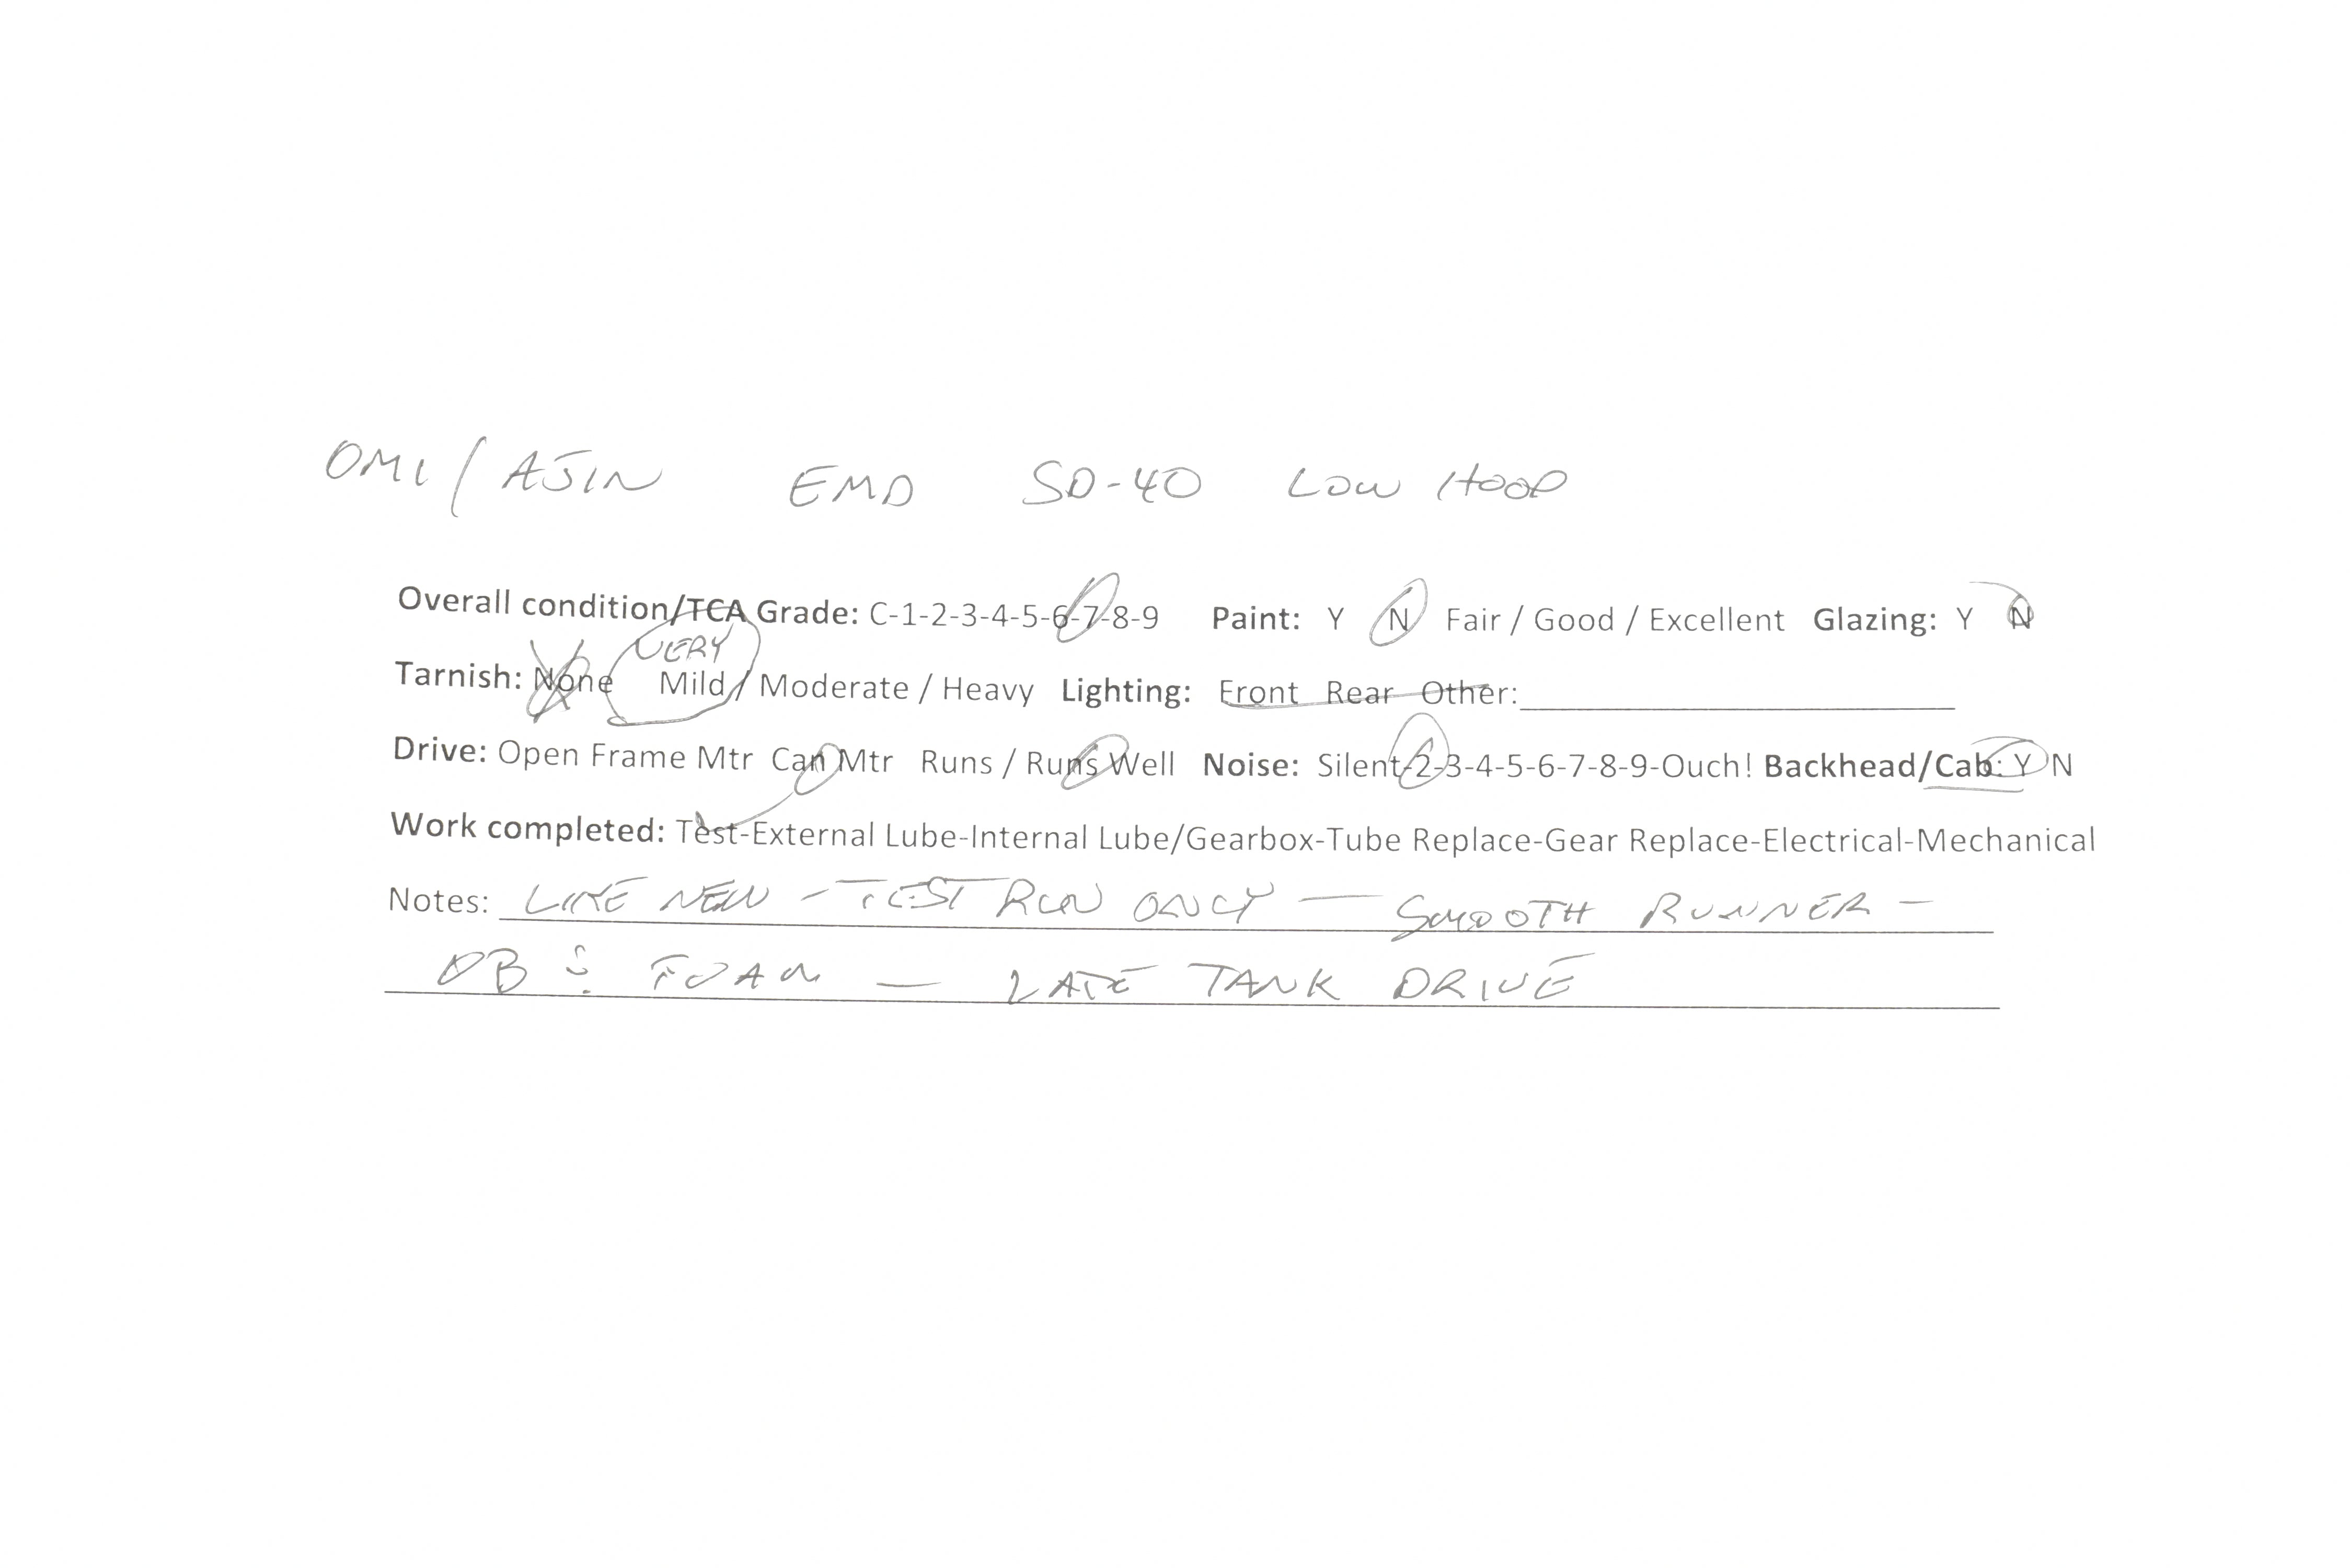 OMI / AJIN EMD SD-40 LOW HOOD
Overall condition/TCA Grade: C-1-2-3-4-5-6-7-8-9 Paint: Y N Fair / Good / Excellent Glazing: Y N
VERY
Tarnish: None Mild / Moderate / Heavy Lighting: Front Rear Other:
Drive: Open Frame Mtr Can Mtr Runs / Runs Well Noise: Silent-2-3-4-5-6-7-8-9-Ouch! Backhead/Cab: Y N
Work completed: Test-External Lube-Internal Lube/Gearbox-Tube Replace-Gear Replace-Electrical-Mechanical
Notes: LIKE NEW - TEST RUN ONLY - SMOOTH RUNNER -
OB & FOAM - LATE TANK DRIVE